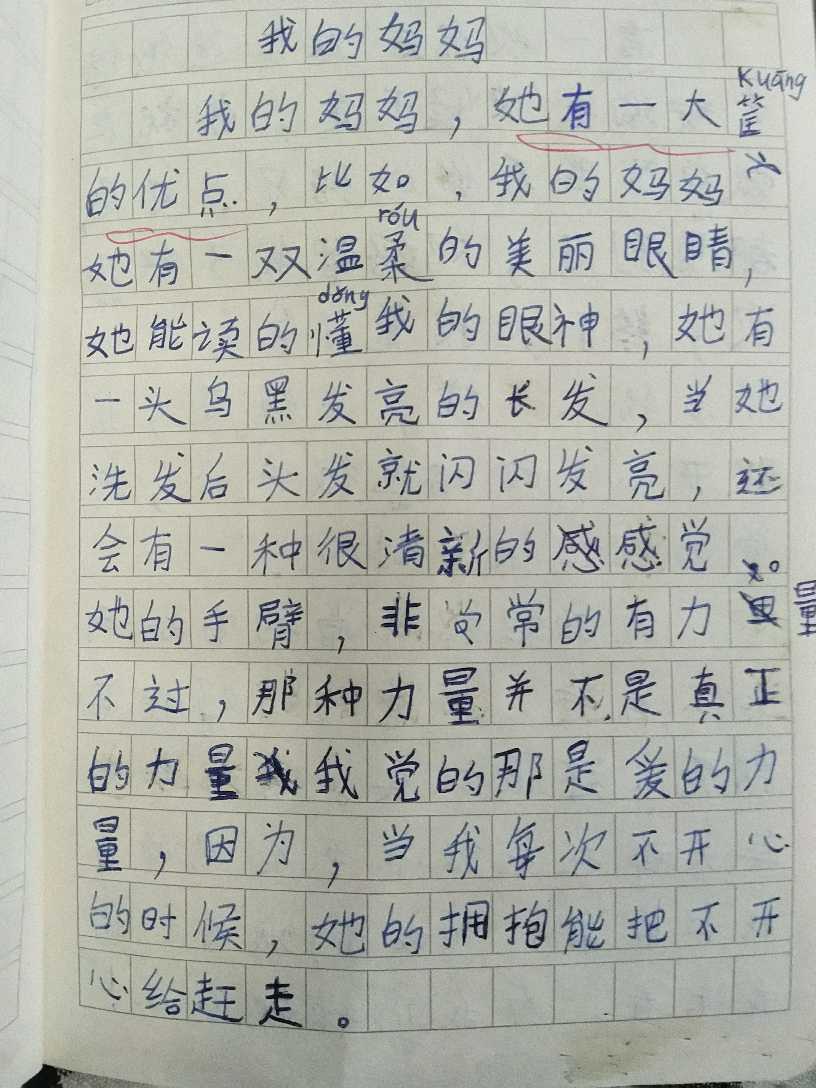 我的妈妈
kuāng
我的妈妈，她有一大筐
的优点，比如，我的妈妈
róu
她有一双温柔的美丽眼睛，
dǒng
她能读的懂我的眼神，她有
一头乌黑发亮的长发，当她
洗发后头发就闪闪发亮，还
会有一种很清新的感感觉。
她的手臂，非常的有力量
不过，那种力量并不是真正
的力量我觉的那是爱的力
量，因为，当我每次不开心
的时候，她的拥抱能把不开
心给赶走。